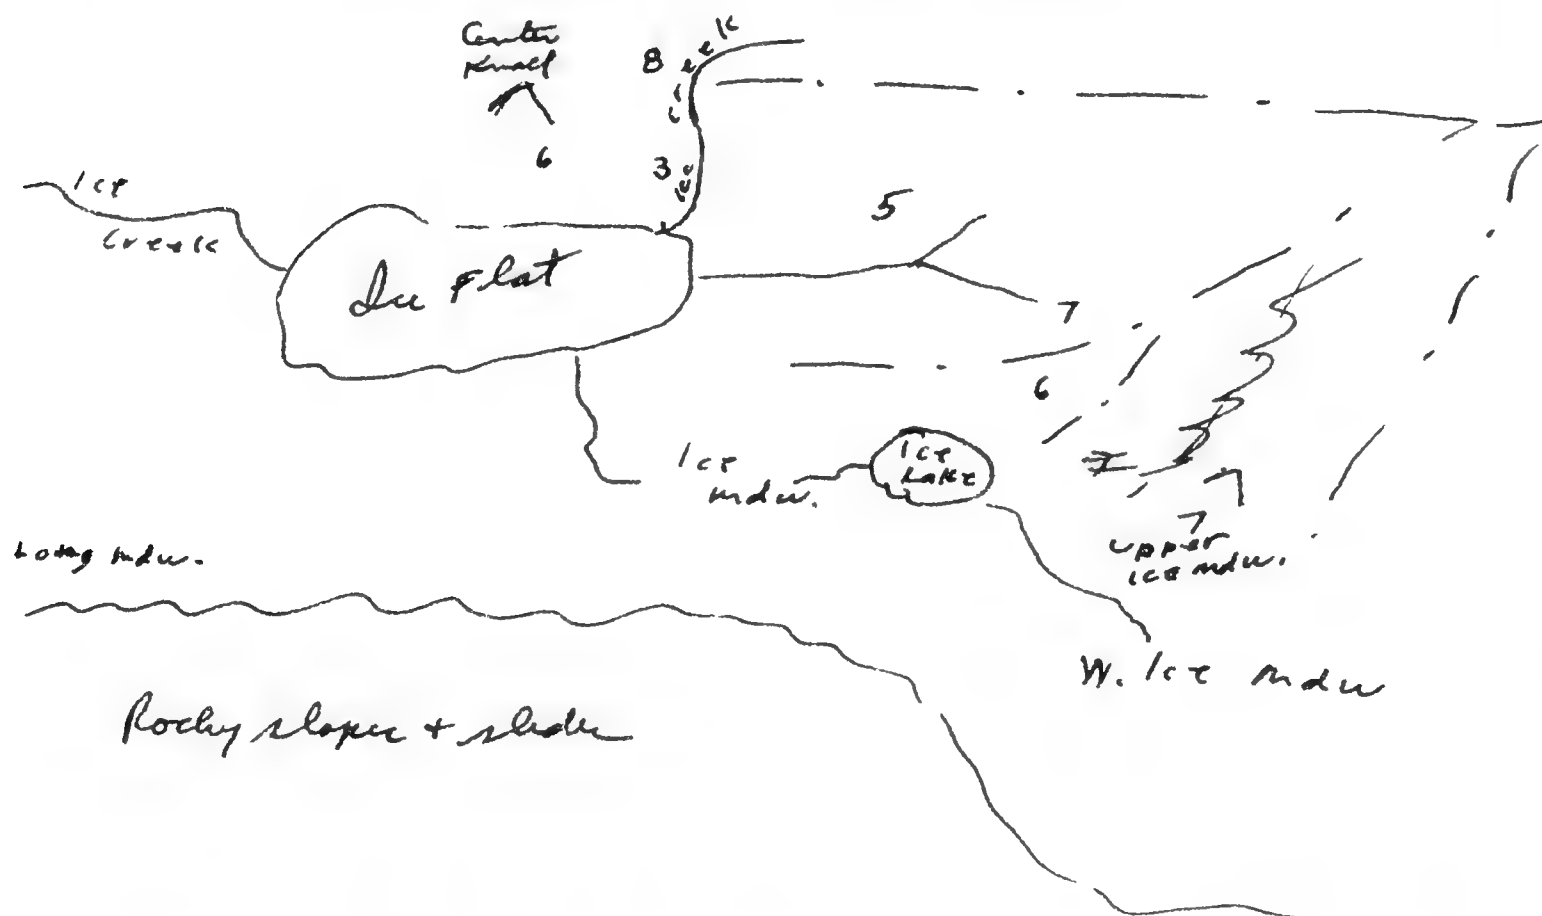 Center
Knoll
8
Creek
6
3
Ice
Ice
Creek
5
Ice Flat
7
6
Ice
mdw.
Ice
Lake
7
upper
ice mdw.
Long mdw.
W. Ice mdw
Rocky slopes + slides